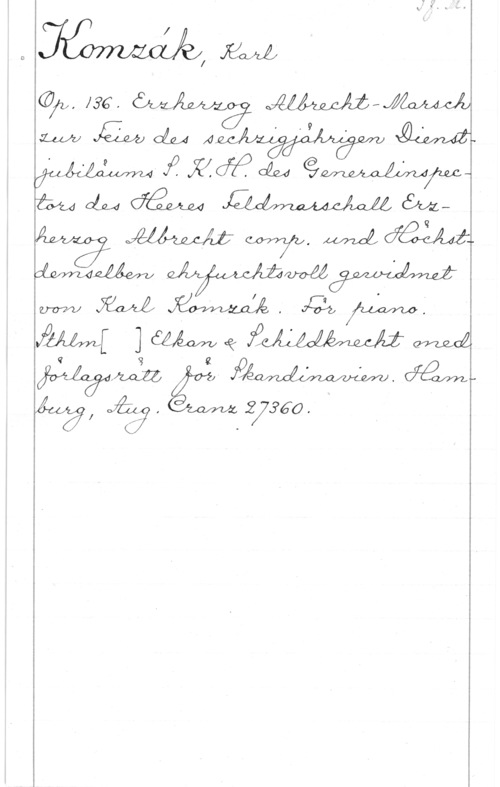 Komzák, Karl
Op. 136. Erzherzog Albrecht-Marsch
zur Feier des sechzigjährigen Dienst-
jubiläums S. K. H. des Generalinspec-
tors des Heeres Feldmarschall Erz-
herzog Albrecht comp. und Höchst-
demselben ehrfurchtsvoll gewidmet
von Karl Komzák. För piano.
Sthlm[ ] Elkan & Schildknecht med
förlagsrätt för Skandinavien. Ham-
burg, Aug. Cranz 27360.